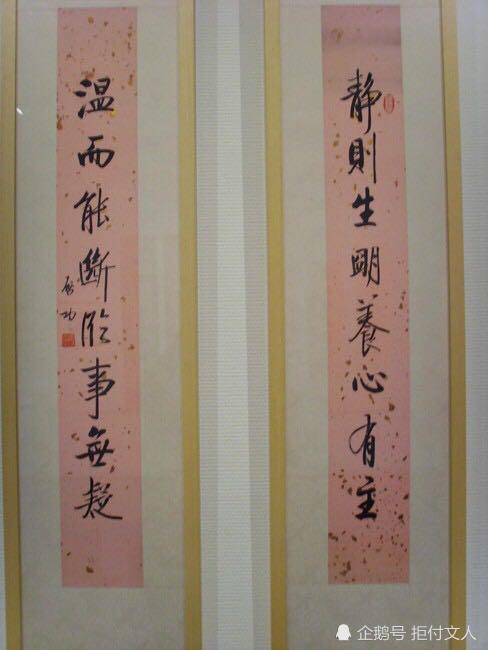 静則生朙養心有主
温而能斷臨事無疑
啟功
企鹅号 拒付文人